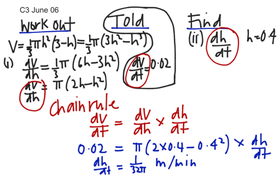 C3 June 06
Work out
Told
Find
V = 1/3 πh²(3-h) = 1/3 π(3h²-h³)
(i) dV/dh = 1/3 π(6h-3h²)
dV/dt = 0.02
(ii) dh/dt h=0.4
dV/dh = π(2h-h²)
Chain rule
dV/dt = dV/dh × dh/dt
0.02 = π(2×0.4-0.4²) × dh/dt
dh/dt = 1/32π m/min